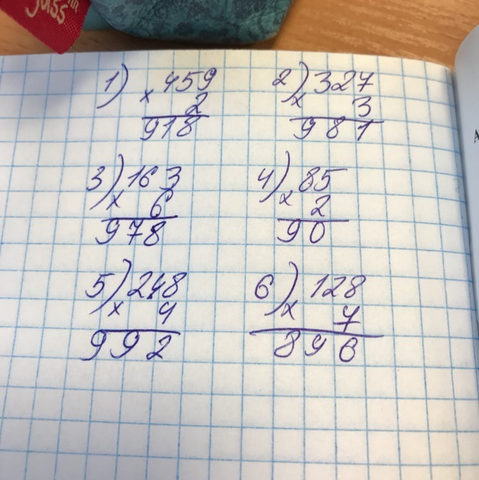 Juss
1) 459
× 2
918
2) 327
× 3
981
3) 163
× 6
978
4) 85
× 2
90
5) 248
× 4
992
6) 128
× 7
896